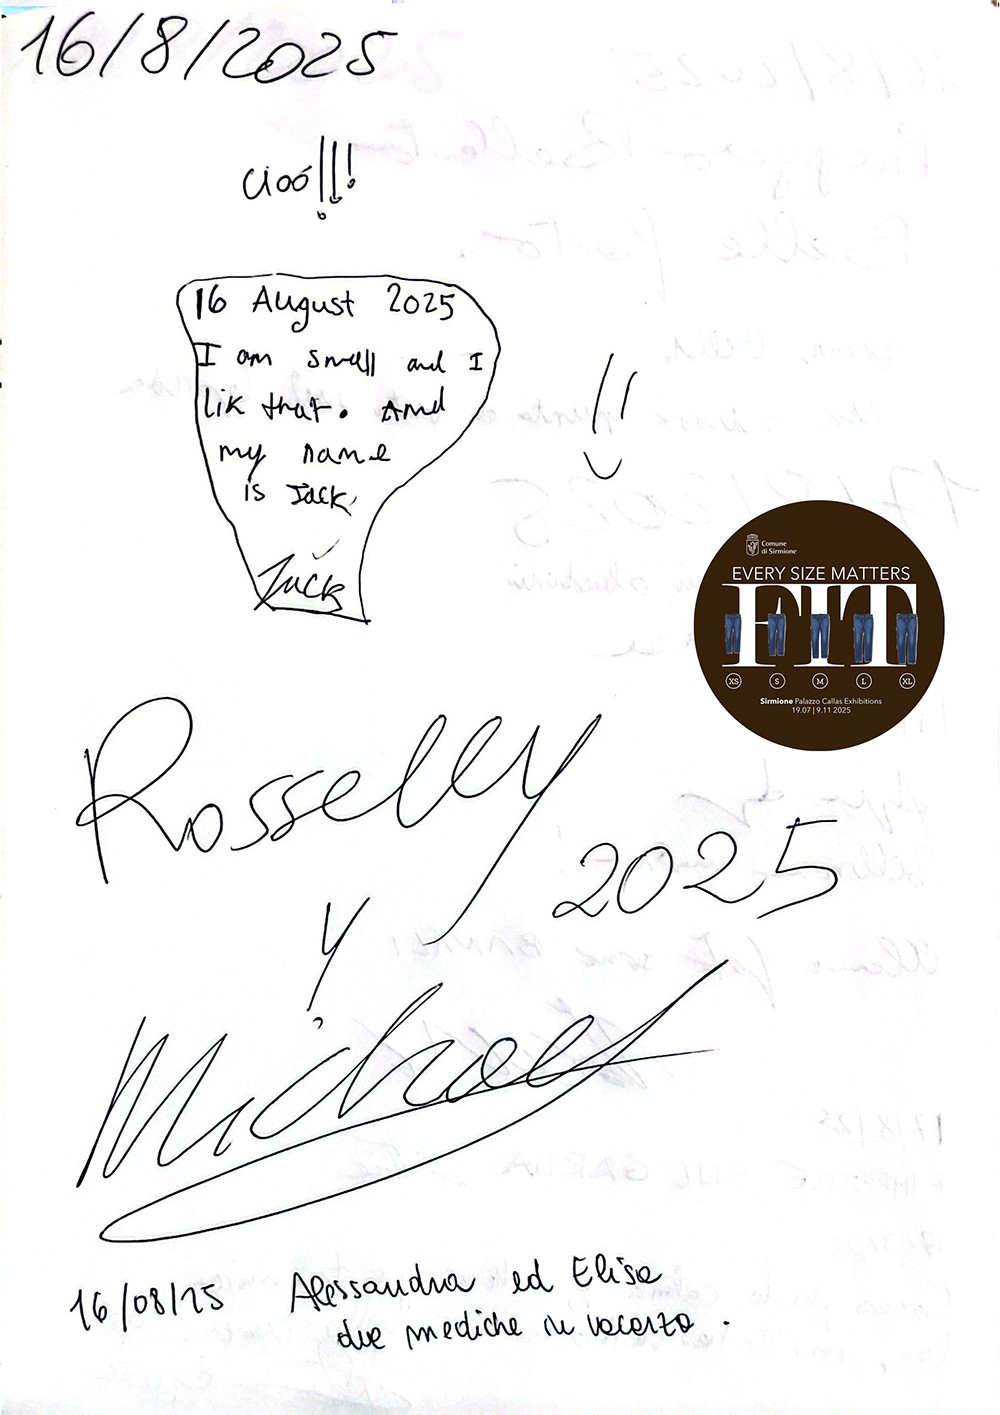 16/8/2025
ciaó!!!
16 August 2025
I am small and I
lik that. And
my name
is Jack.
Jack
!!
Comune
di Sirmione
EVERY SIZE MATTERS
FIT
XS S M L XL
Sirmione Palazzo Callas Exhibitions
19.07 | 9.11 2025
Rosselly
2025
y
Michael
16/08/25 Alessandra ed Elisa
due mediche in vacanza.